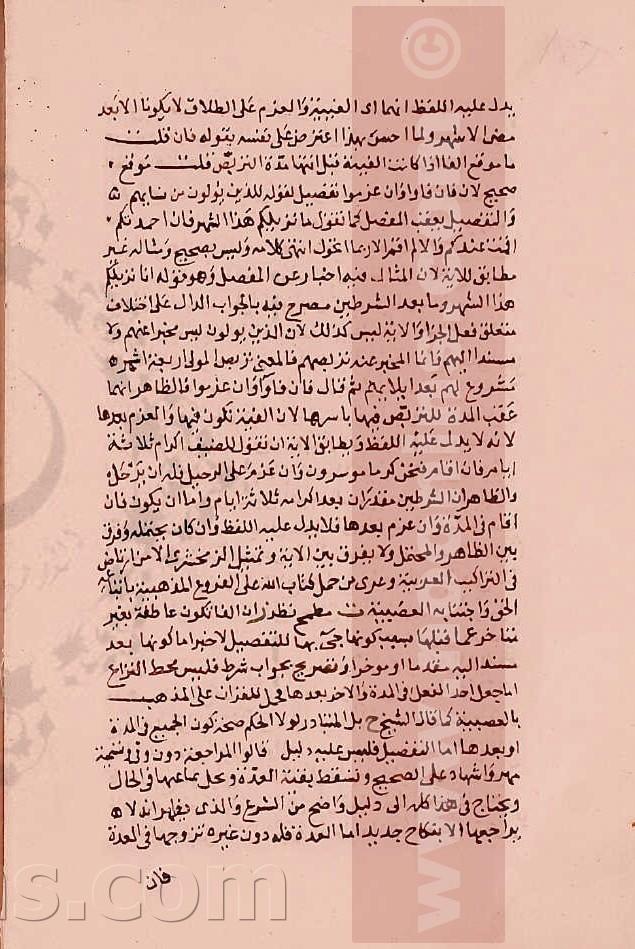 يدل عليه اللفظ انهما اى الفيئة والعزم على الطلاق لا يكونا الا بعد
مضى الاشهر ولما احسن بهذا اعترض على نفسه بقوله فان قلت
ما موقع الفا اذا كانت الفيئة قبل انتهآ مدة التربص قلت موقع
صحيح لان فان فاوا وان عزموا تفصيل لقوله للذين يولون من نسايهم
والتفصيل يعقب المفصل كما تقول ما نزيلكم هذا الشهر فان احمدتكم
اقمت عندكم والا لم اقم الا ريثما اتحول انتهى كلامه وليس بصحيح ومثاله غير
مطابق للاية لان المثال فيه اخبار عن المفصل وهو قوله انا نزيلكم
هذا الشهر وما بعد الشرطين مصرح فيه بالجواب الدال على اختلاف
متعلق فعل الجزا والاية ليس كذلك لان الذين يولون ليس مخبرا عنهم ولا
مسندا اليهم وانما المخبر عنه تربصهم فالمعنى تربص المولى اربعة اشهر
مشروع لهم بعد ايلايهم ثم قال فان فاوا وان عزموا فالظاهر انهما
عقب المدة للتربص فيها باسرها لان الفيئة تكون فيها والعزم بعدها
لانه لا يدل عليه اللفظ ويطابق الاية ان تقول للضيف اكرام ثلاثة
ايام فان اقام فنحن كرما موسرون وان عزم على الرحيل فله ان يرحل
والظاهر ان الشرطين مقدران بعد اكرامه ثلاثة ايام واما ان يكون فان
اقام فى المدة وان عزم بعدها فلا يدل عليه اللفظ وان كان يحتمله وفرق
بين الظاهر والمحتمل ولا يفرق بين الاية وتمثيل الزمخشرى الا من ارتاض
فى التراكيب العربية وعرى من حمل كتاب الله على الفروع المذهبية باتباعه
الحق واجتنابه العصبية نظر ان الفا تكون عاطفة بغير
تتاخر عما قبلها بسبب كونها جئ بها للتفصيل لا خبرا ما كونها بعد
مسند اليه مقدما او موخرا وتصريح بجواب شرط فليس محط النزاع
اما جعل احد الفعل فى المدة والاخر بعدها فحمل للقران على المذهب
بالعصبية كما قال الشيخ بل المتبادر لولا الحكم صحة كون الجميع فى المدة
او بعدها اما التفصيل فليس عليه دليل قالوا المراجعة دون ولى وتسمية
مهر واشهاد على الصحيح وتسقط بقية العدة ويحل جماعها فى الحال
ويحتاج فى هذا كله الى دليل واضح من الشرع والذى يظهر انه لا
يراجعها الا بنكاح جديد اما العدة فله دون غيره تزوجها فى العدة
فان